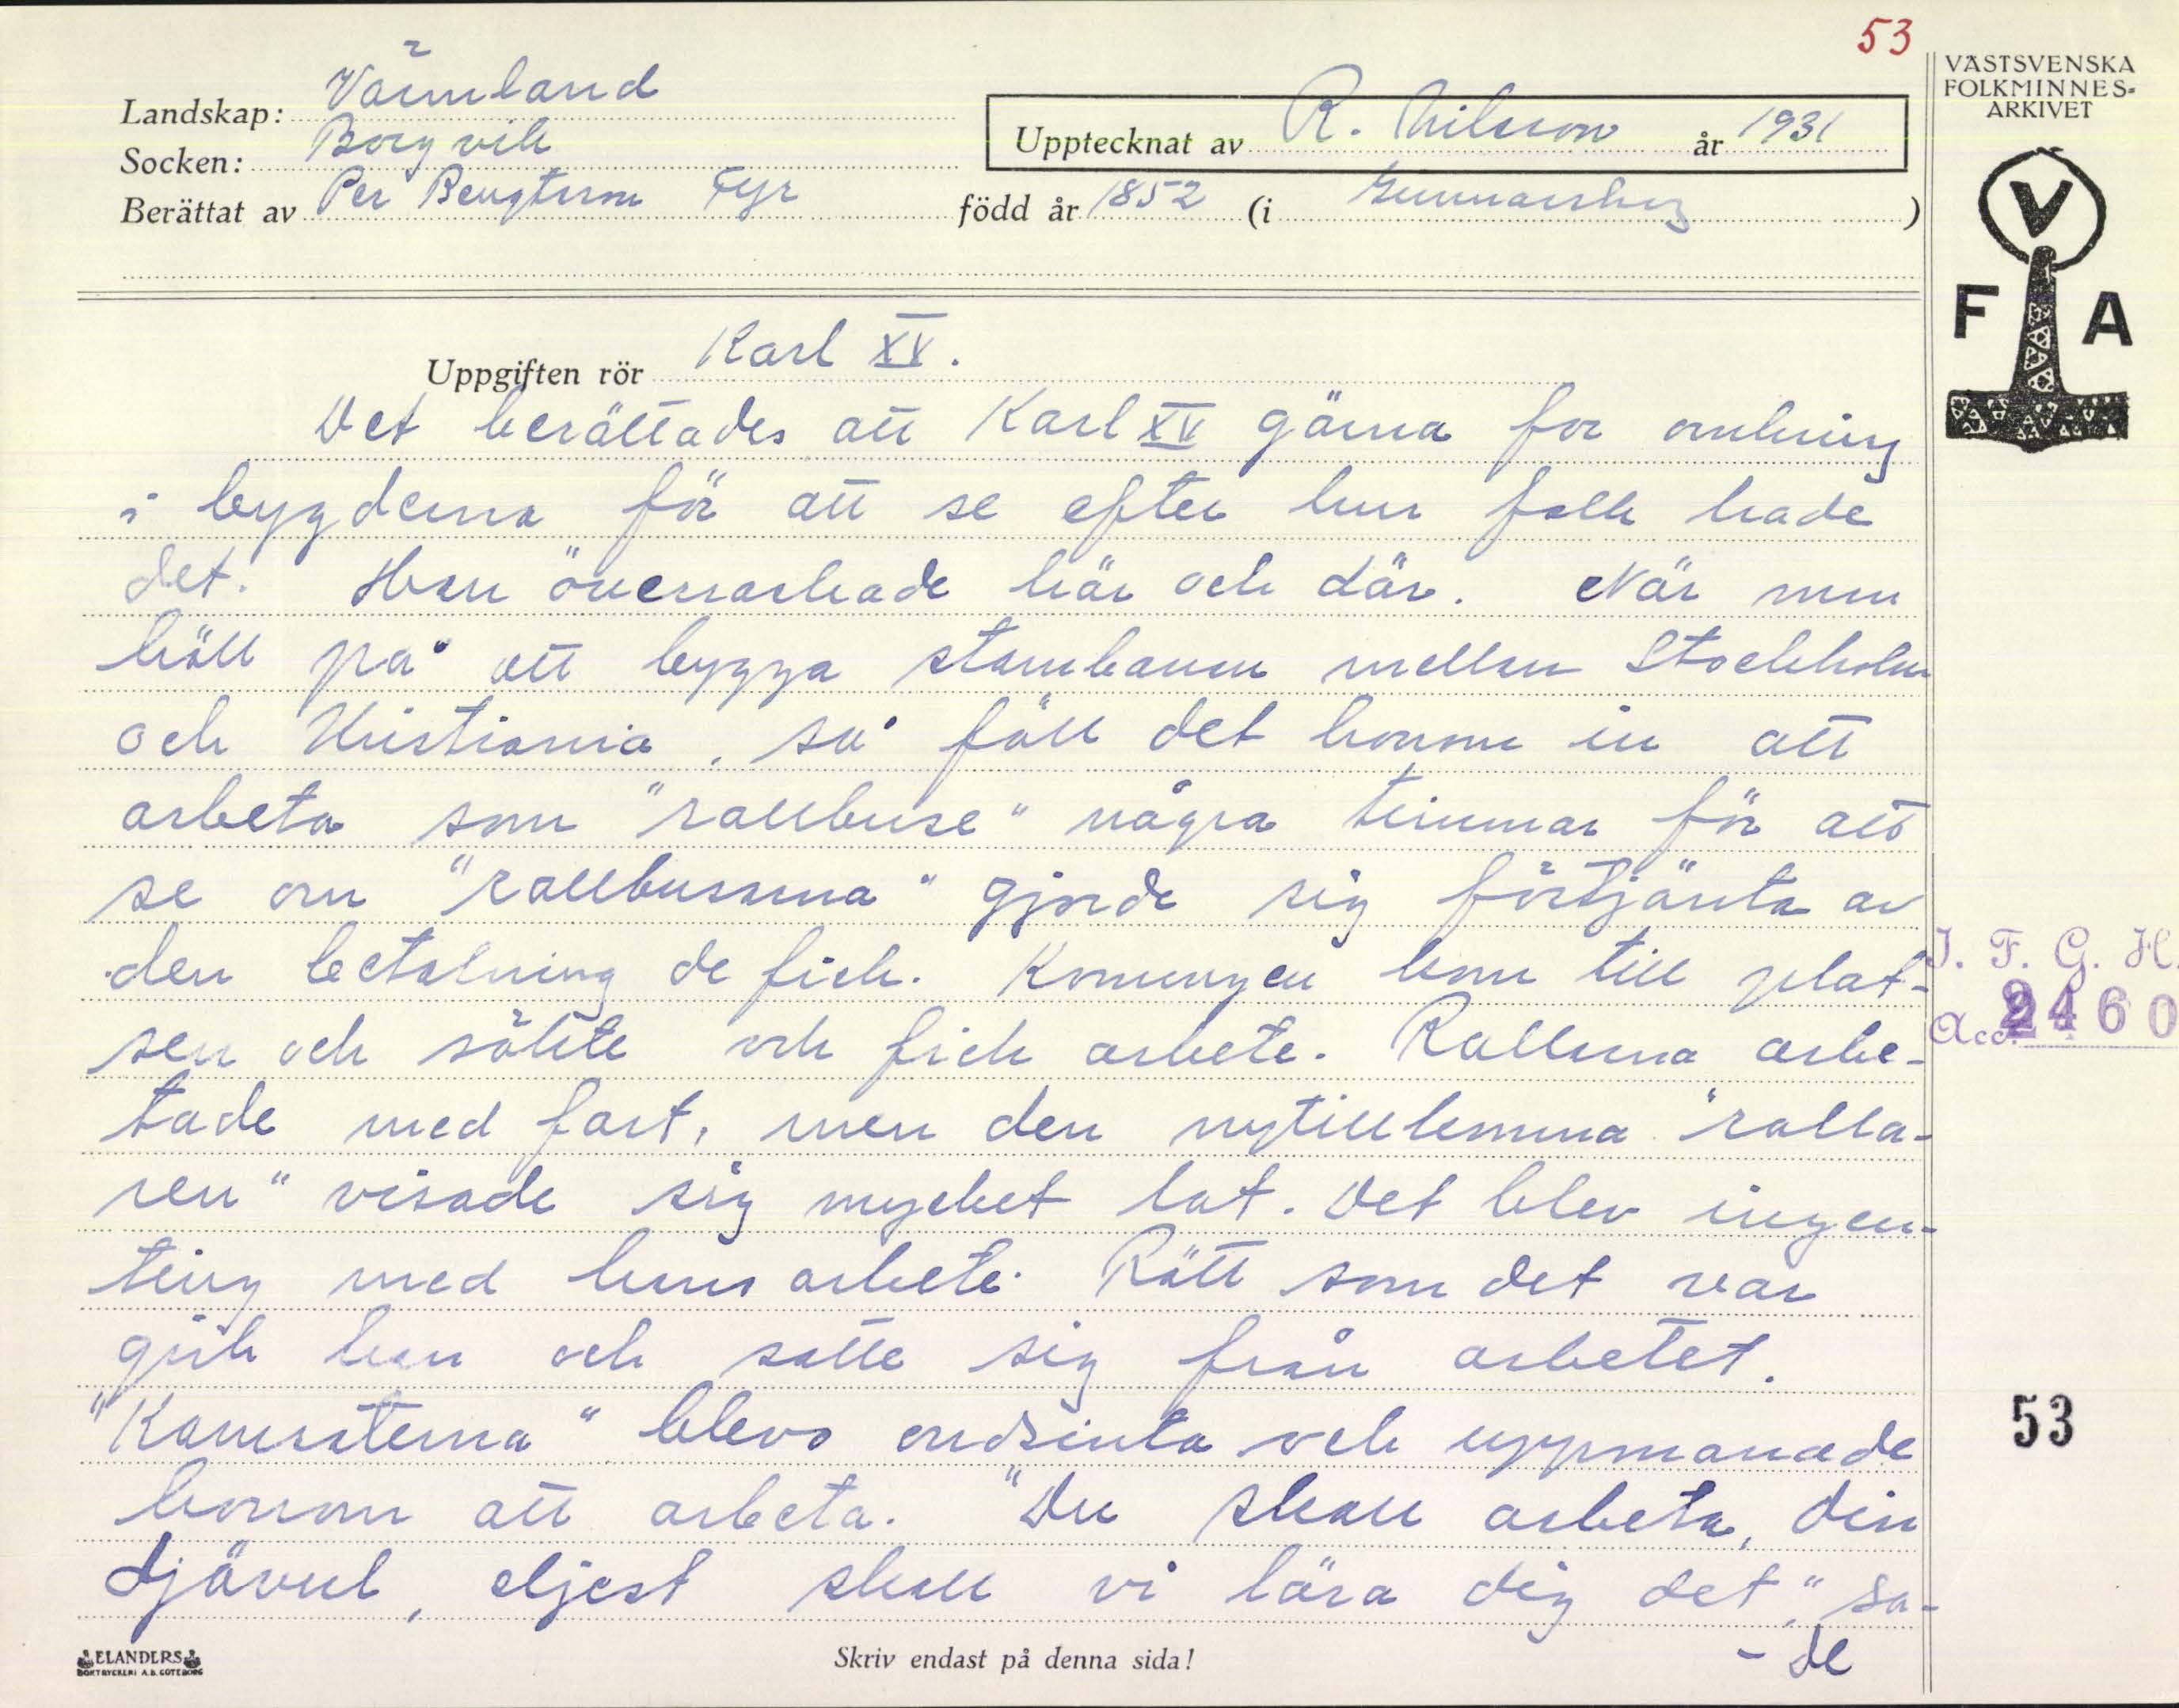 53
VÄSTSVENSKA
FOLKMINNES-
ARKIVET
Landskap: Värmland
Socken: Borgvik
Upptecknat av R. Nilsson år 1931
Berättat av Per Bengtsson Fyr född år 1852 (i Gunnarskog)
V
F A
Uppgiften rör Karl XV.
Det berättades att Karl XV gärna for omkring
i bygderna för att se efter hur folk hade
det. Han överraskade här och där. När man
höll på att bygga stambanan mellan Stockholm
och Kristiania, så föll det honom in att
arbeta som "rallbuse" några timmar för att
se om "rallbusarna" gjorde sig förtjänta av
den betalning de fick. Konungen kom till plat-
sen och sökte och fick arbete. Rallarna arbe-
tade med fart, men den nytillkomna "ralla-
ren" visade sig mycket lat. Det blev ingen-
ting med hans arbete. Rätt som det var
gick han och satte sig från arbetet.
"Kamraterna" blevo ondsinta och uppmanade
honom att arbeta. "Du skall arbeta, din
djävul, eljest skall vi lära dig det," sa-
- de
J. F. G. H.
Acc. 2460
53
ELANDERS
BOKTRYCKERI A.B. GÖTEBORG
Skriv endast på denna sida!